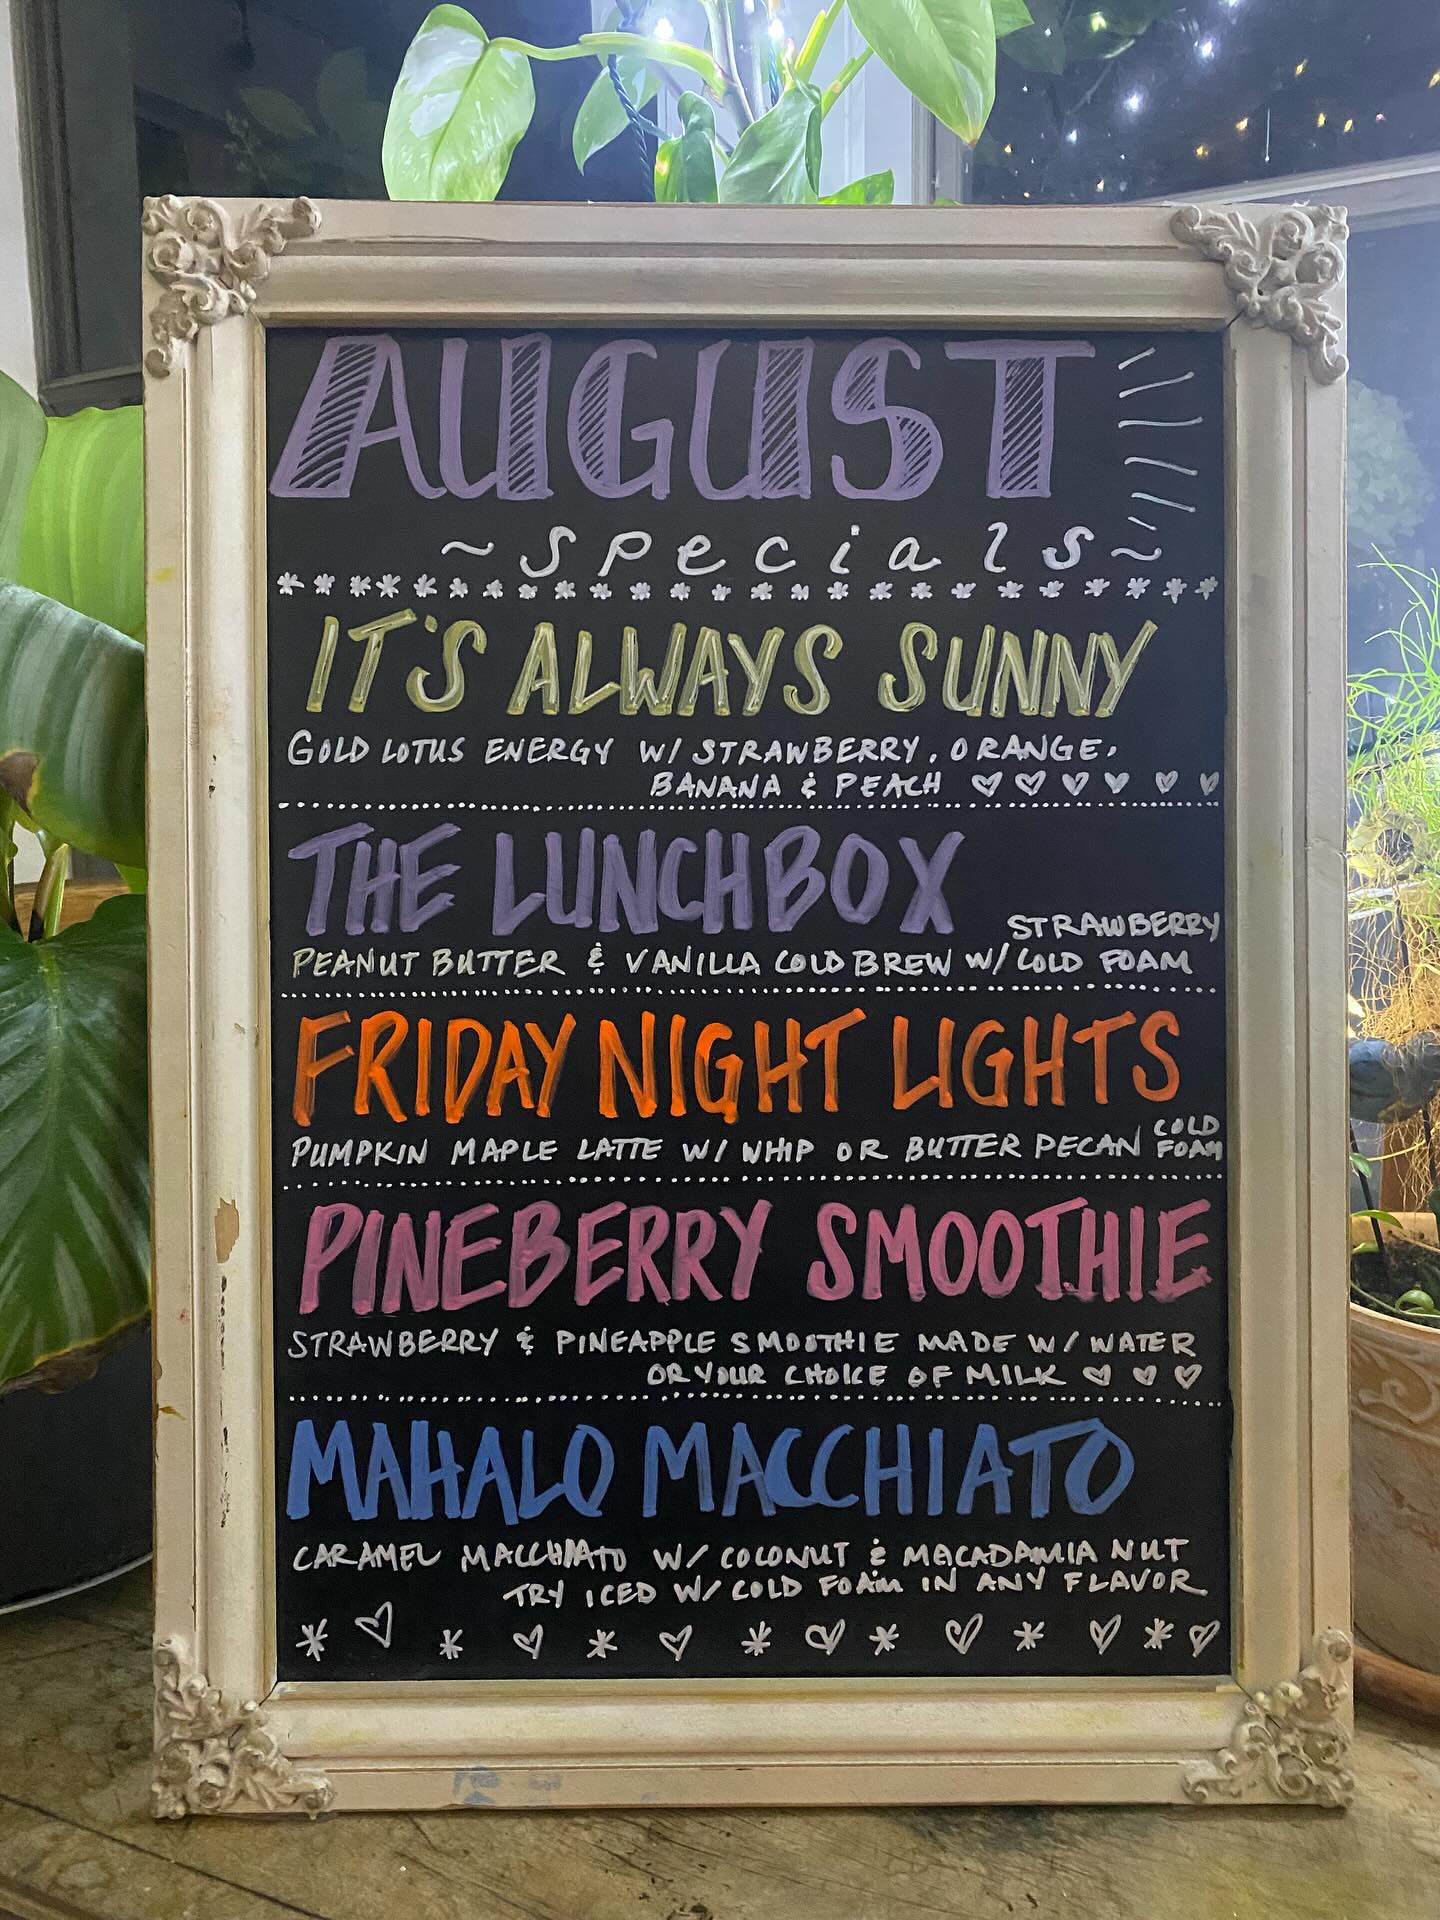 AUGUST
~specials~
IT'S ALWAYS SUNNY
GOLD LOTUS ENERGY W/ STRAWBERRY, ORANGE,
BANANA & PEACH
THE LUNCHBOX
STRAWBERRY
PEANUT BUTTER & VANILLA COLD BREW W/ COLD FOAM
FRIDAY NIGHT LIGHTS
PUMPKIN MAPLE LATTE W/ WHIP OR BUTTER PECAN COLD FOAM
PINEBERRY SMOOTHIE
STRAWBERRY & PINEAPPLE SMOOTHIE MADE W/ WATER
OR YOUR CHOICE OF MILK
MAHALO MACCHIATO
CARAMEL MACCHIATO W/ COCONUT & MACADAMIA NUT
TRY ICED W/ COLD FOAM IN ANY FLAVOR